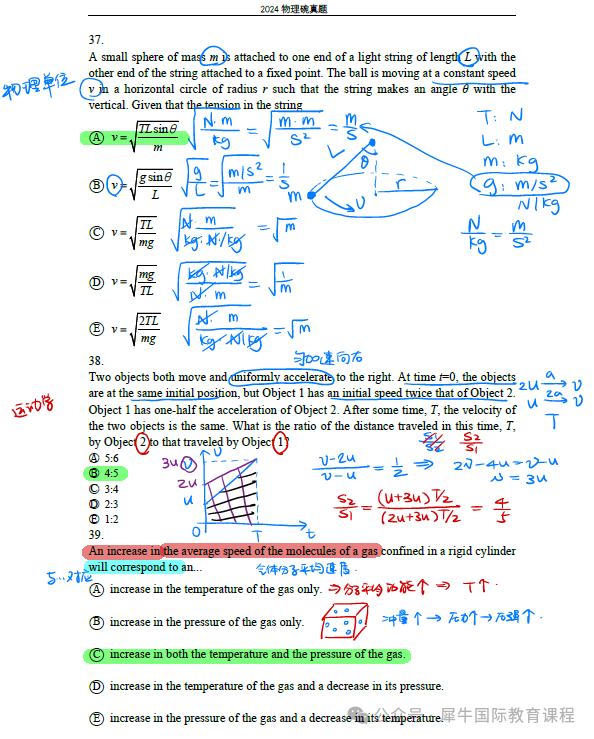 2024 物理碗真题
37.
A small sphere of mass m is attached to one end of a light string of length L with the
other end of the string attached to a fixed point. The ball is moving at a constant speed
v in a horizontal circle of radius r such that the string makes an angle θ with the
vertical. Given that the tension in the string
物理单位
Ⓐ v = √(TL sin θ / m) √(N·m / kg) = √(m·m / s²) = m/s
Ⓑ v = √(g sin θ / L) √(g / L) = √(m/s² / m) = 1/s
Ⓒ v = √(TL / mg) √(N·m / kg·N/kg) = √m
Ⓓ v = √(mg / TL) √(kg·N/kg / N·m) = √(1/m)
Ⓔ v = √(2TL / mg) √(N·m / kg·N/kg) = √m
L θ r m υ
T: N
L: m
m: kg
g: m/s²
N/kg
N/kg = m/s²
38.
匀加速向右
Two objects both move and uniformly accelerate to the right. At time t=0, the objects
are at the same initial position, but Object 1 has an initial speed twice that of Object 2.
Object 1 has one-half the acceleration of Object 2. After some time, T, the velocity of
the two objects is the same. What is the ratio of the distance traveled in this time, T,
by Object 2 to that traveled by Object 1?
运动学
2u a→ v
u 2a→ v
T
S1/S2 S2/S1
Ⓐ 5:6
Ⓑ 4:5
Ⓒ 3:4
Ⓓ 2:3
Ⓔ 1:2
3u υ υ
2u
u
0 T t
v-2u / v-u = 1/2 ⇒ 2v-4u = v-u
v = 3u
S2/S1 = (u+3u)T/2 / (2u+3u)T/2 = 4/5
39.
An increase in the average speed of the molecules of a gas confined in a rigid cylinder
will correspond to an...
气体分子平均速度.
Ⓐ increase in the temperature of the gas only. ⇒分子平均动能↑ ⇒ T↑.
Ⓑ increase in the pressure of the gas only. 冲量↑ → 压力↑ → 压强↑.
Ⓒ increase in both the temperature and the pressure of the gas.
Ⓓ increase in the temperature of the gas and a decrease in its pressure.
Ⓔ increase in the pressure of the gas and a decrease in its temperature.
公众号 · 犀牛国际教育课程